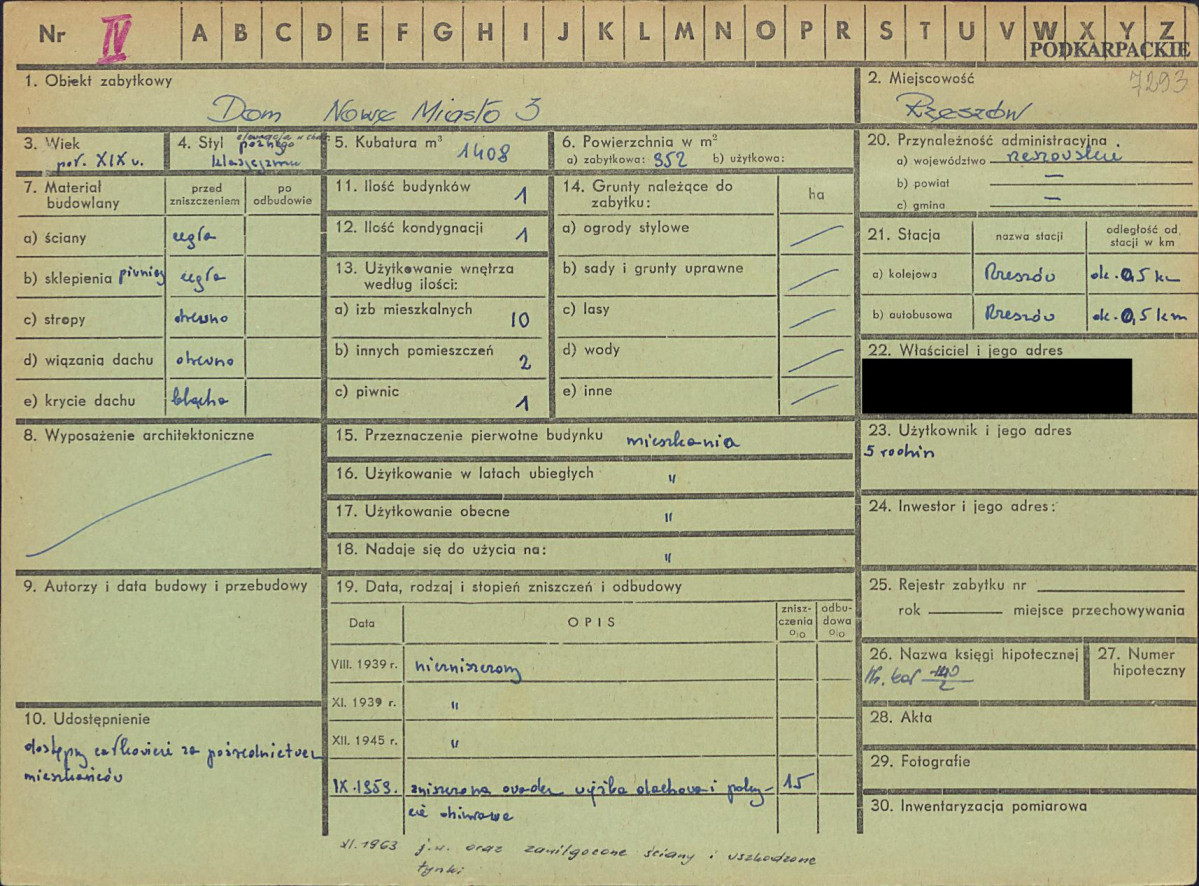 Nr IV A B C D E F G H I J K L M N O P R S T U V W X Y Z
PODKARPACKIE
7293
1. Obiekt zabytkowy
Dom Nowe Miasto 3
2. Miejscowość
Rzeszów
3. Wiek
poł. XIX w.
4. Styl elewacja w
późnego
klasycyzmu
5. Kubatura m³ 1408
6. Powierzchnia w m²
a) zabytkowa: 352 b) użytkowa:
20. Przynależność administracyjna
a) województwo rzeszowskie
b) powiat —
c) gmina —
7. Materiał budowlany
przed zniszczeniem
po odbudowie
a) ściany cegła
b) sklepienia piwnicy cegła
c) stropy drewno
d) wiązania dachu drewno
e) krycie dachu blacha
11. Ilość budynków 1
12. Ilość kondygnacji 1
13. Użytkowanie wnętrza
według ilości:
a) izb mieszkalnych 10
b) innych pomieszczeń 2
c) piwnic 1
14. Grunty należące do
zabytku:
ha
a) ogrody stylowe
b) sady i grunty uprawne
c) lasy
d) wody
e) inne
21. Stacja
nazwa stacji
odległość od
stacji w km
a) kolejowa Rzeszów ok. 0,5 km
b) autobusowa Rzeszów ok. 0,5 km
22. Właściciel i jego adres
8. Wyposażenie architektoniczne
15. Przeznaczenie pierwotne budynku mieszkania
16. Użytkowanie w latach ubiegłych "
17. Użytkowanie obecne "
18. Nadaje się do użycia na: "
23. Użytkownik i jego adres
5 rodzin
24. Inwestor i jego adres:
9. Autorzy i data budowy i przebudowy
19. Data, rodzaj i stopień zniszczeń i odbudowy
Data
OPIS
znisz-
czenia
o/o
odbu-
dowa
o/o
VIII. 1939 r. niezniszczony
XI. 1939 r. "
XII. 1945 r. "
IX.1959. zniszczona więźba dachowa i pokry- 15
cie
XI.1963 j.w. oraz zawilgocone ściany i uszkodzone
tynki
25. Rejestr zabytku nr
rok miejsce przechowywania
26. Nazwa księgi hipotecznej
27. Numer
hipoteczny
28. Akta
29. Fotografie
30. Inwentaryzacja pomiarowa
10. Udostępnienie
dostępny całkowicie za pośrednictwem
mieszkańców